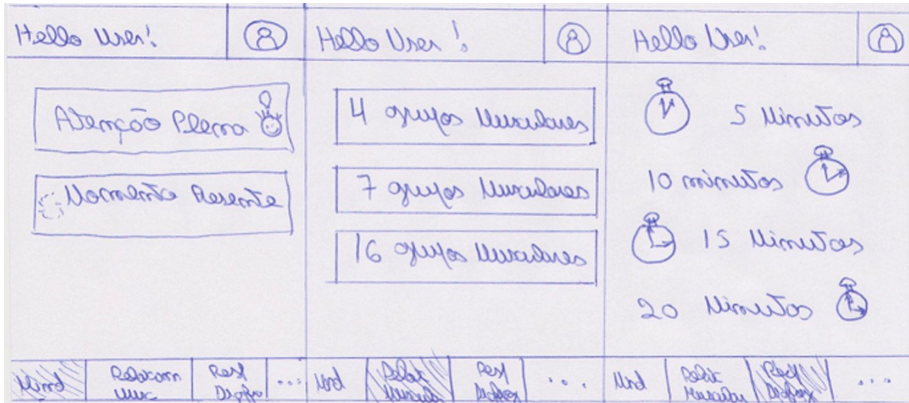 Hello User!
Atenção Plena
Momento Presente
Mind
Relaxam
Musc
Resp
...
Hello User!
4 grupos Musculares
7 grupos Musculares
16 grupos Musculares
Mind
Relax
Muscular
Resp
...
Hello User!
5 Minutos
10 minutos
15 Minutos
20 Minutos
Mind
Relax
Muscular
Resp
...